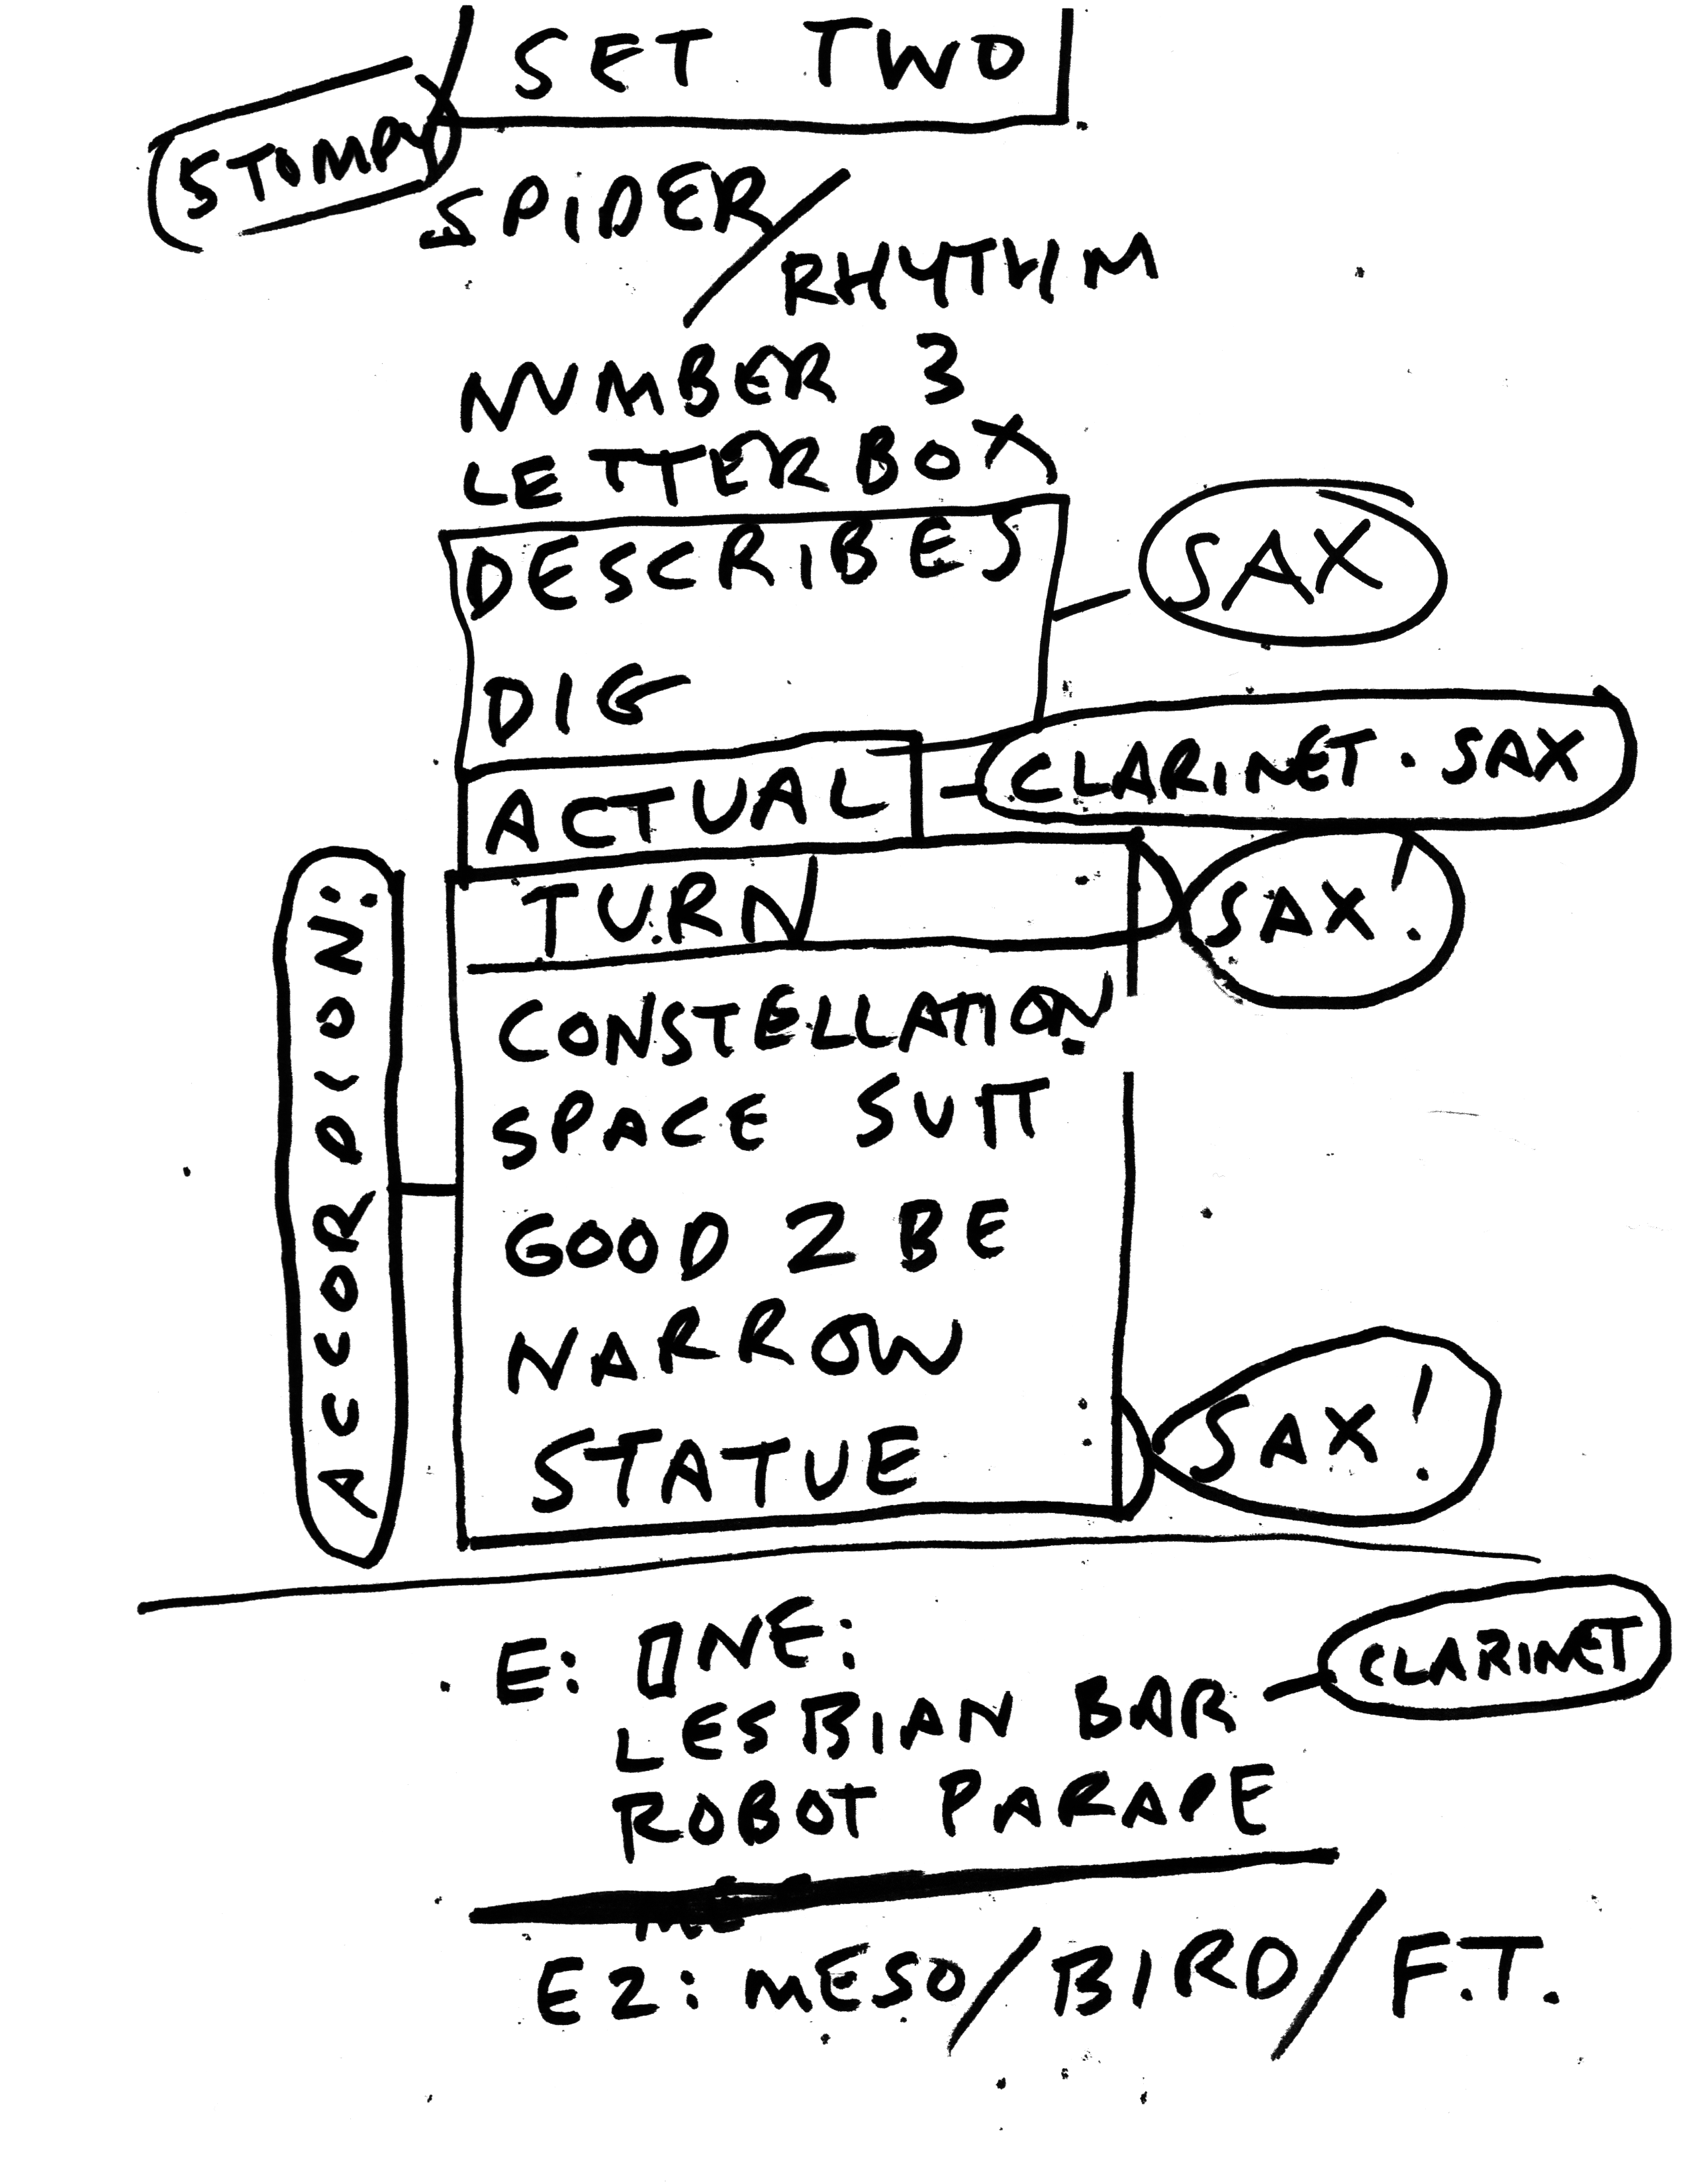 SET TWO
STOMPY
SPIDER/
RHYTHM
NUMBER 3
LETTERBOX
DESCRIBES
SAX
DIG
ACTUAL
CLARINET · SAX
TURN
SAX!
ACCORDION:
CONSTELLATION
SPACE SUIT
GOOD 2 BE
NARROW
STATUE
SAX!
E: ONE:
LESBIAN BAR
CLARINET
ROBOT PARADE
E2: MESO/BIRD/F.T.